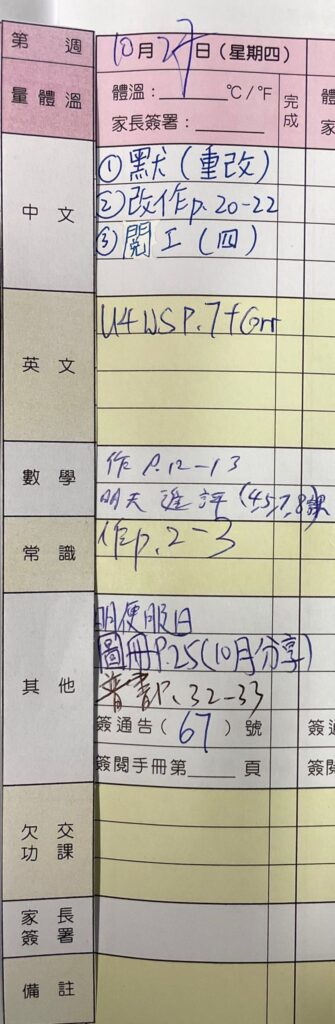 第　週
10月27日（星期四）
量體溫
體溫：______℃/℉
家長簽署：______
完成
中文
①默（重改）
②改作p.20-22
③閱工（四）
英文
U4 WS P.7+Grr
數學
作P.12-13
明天進評（4,5,7,8課
常識
作p.2-3
其他
明便服日
圖冊P.25（10月分享）
普書P.32-33
簽通告（67）號
簽閱手冊第____頁
欠交功課
家長簽署
備註
體
家
簽通
簽閱